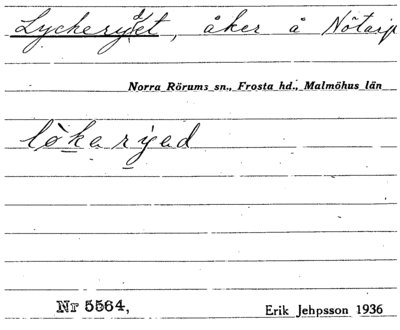 Lyckerydet, åker å Nötaip
Norra Rörums sn., Frosta hd., Malmöhus län
lòkaryad
Nr 5564,
Erik Jehpsson 1936